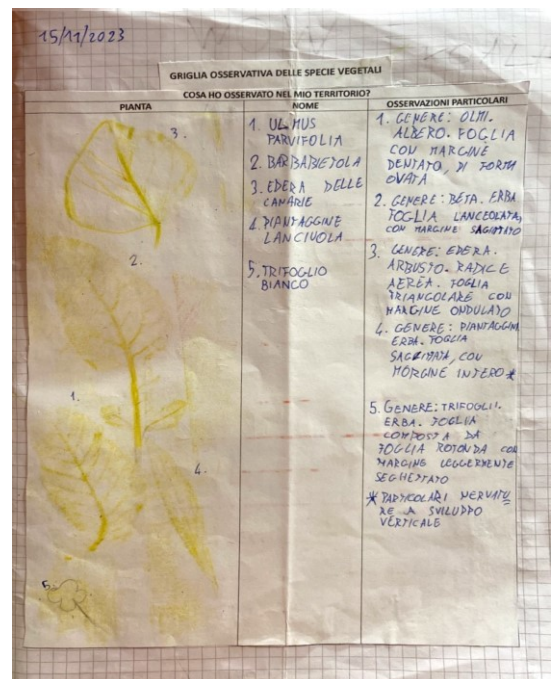 15/11/2023
GRIGLIA OSSERVATIVA DELLE SPECIE VEGETALI
COSA HO OSSERVATO NEL MIO TERRITORIO?
PIANTA
NOME
OSSERVAZIONI PARTICOLARI
3.
2.
1.
4.
5.
1. ULMUS
PARVIFOLIA
2. BARBABIETOLA
3. EDERA DELLE
CANARIE
4. PIANTAGGINE
LANCIUOLA
5. TRIFOGLIO
BIANCO
1. GENERE: OLMI.
ALBERO. FOGLIA
CON MARGINE
DENTATO, DI FORMA
OVATA
2. GENERE: BETA. ERBA
FOGLIA LANCEOLATA,
CON MARGINE SAGITTATO
3. GENERE: EDERA.
ARBUSTO. RADICE
AEREA. FOGLIA
TRIANGOLARE CON
MARGINE ONDULATO
4. GENERE: PIANTAGGINI
ERBA. FOGLIA
SAGITTATA, CON
MORGINE INTERO*
5. GENERE: TRIFOGLI.
ERBA. FOGLIA
COMPOSTA DA
FOGLIA ROTONDA CON
MARGINE LEGGERMENTE
SEGHETTATO
* PARTICOLARI NERVATU
RE A SVILUPPO
VERTICALE